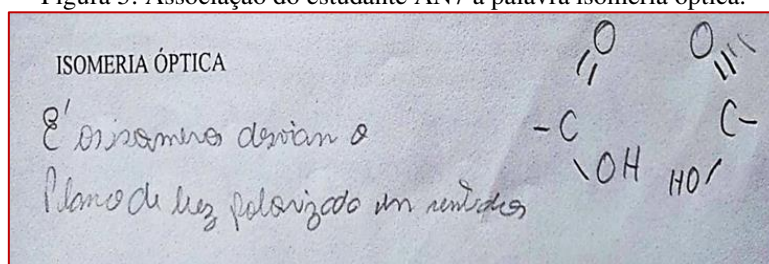 Figura 3: Associação do estudante AN7 a palavra isomeria óptica.
ISOMERIA ÓPTICA
É os isomeros desviam o
Plano de luz polarizado em sentidos
O O
- C C -
OH HO